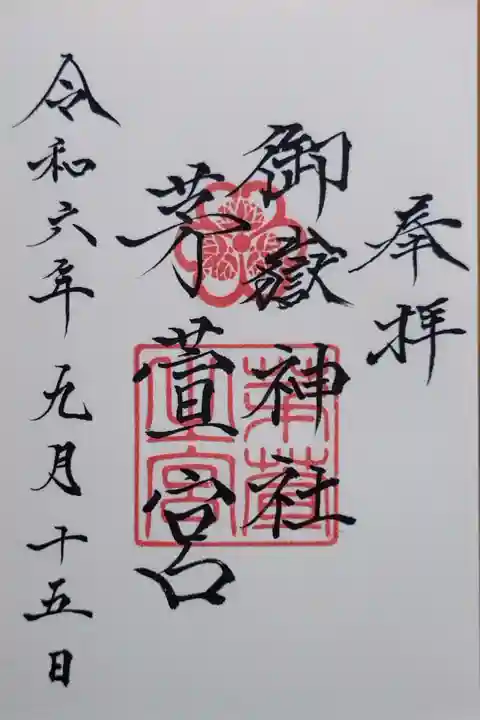 奉拝
御嶽神社
茅萱宮
令和六年九月十五日